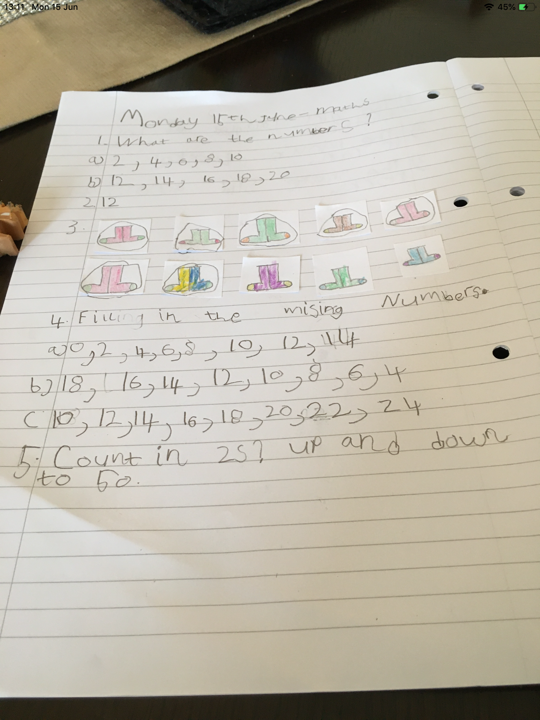 13:11 Mon 15 Jun 45%
Monday 15th June - maths
1. What are the numbers?
a) 2, 4, 6, 8, 10
b) 12, 14, 16, 18, 20
2. 12
3.
4. Filling in the mising Numbers.
a) 0, 2, 4, 6, 8, 10, 12, 14
b) 18, 16, 14, 12, 10, 8, 6, 4
C 10, 12, 14, 16, 18, 20, 22, 24
5. Count in 2s? up and down
to 50.